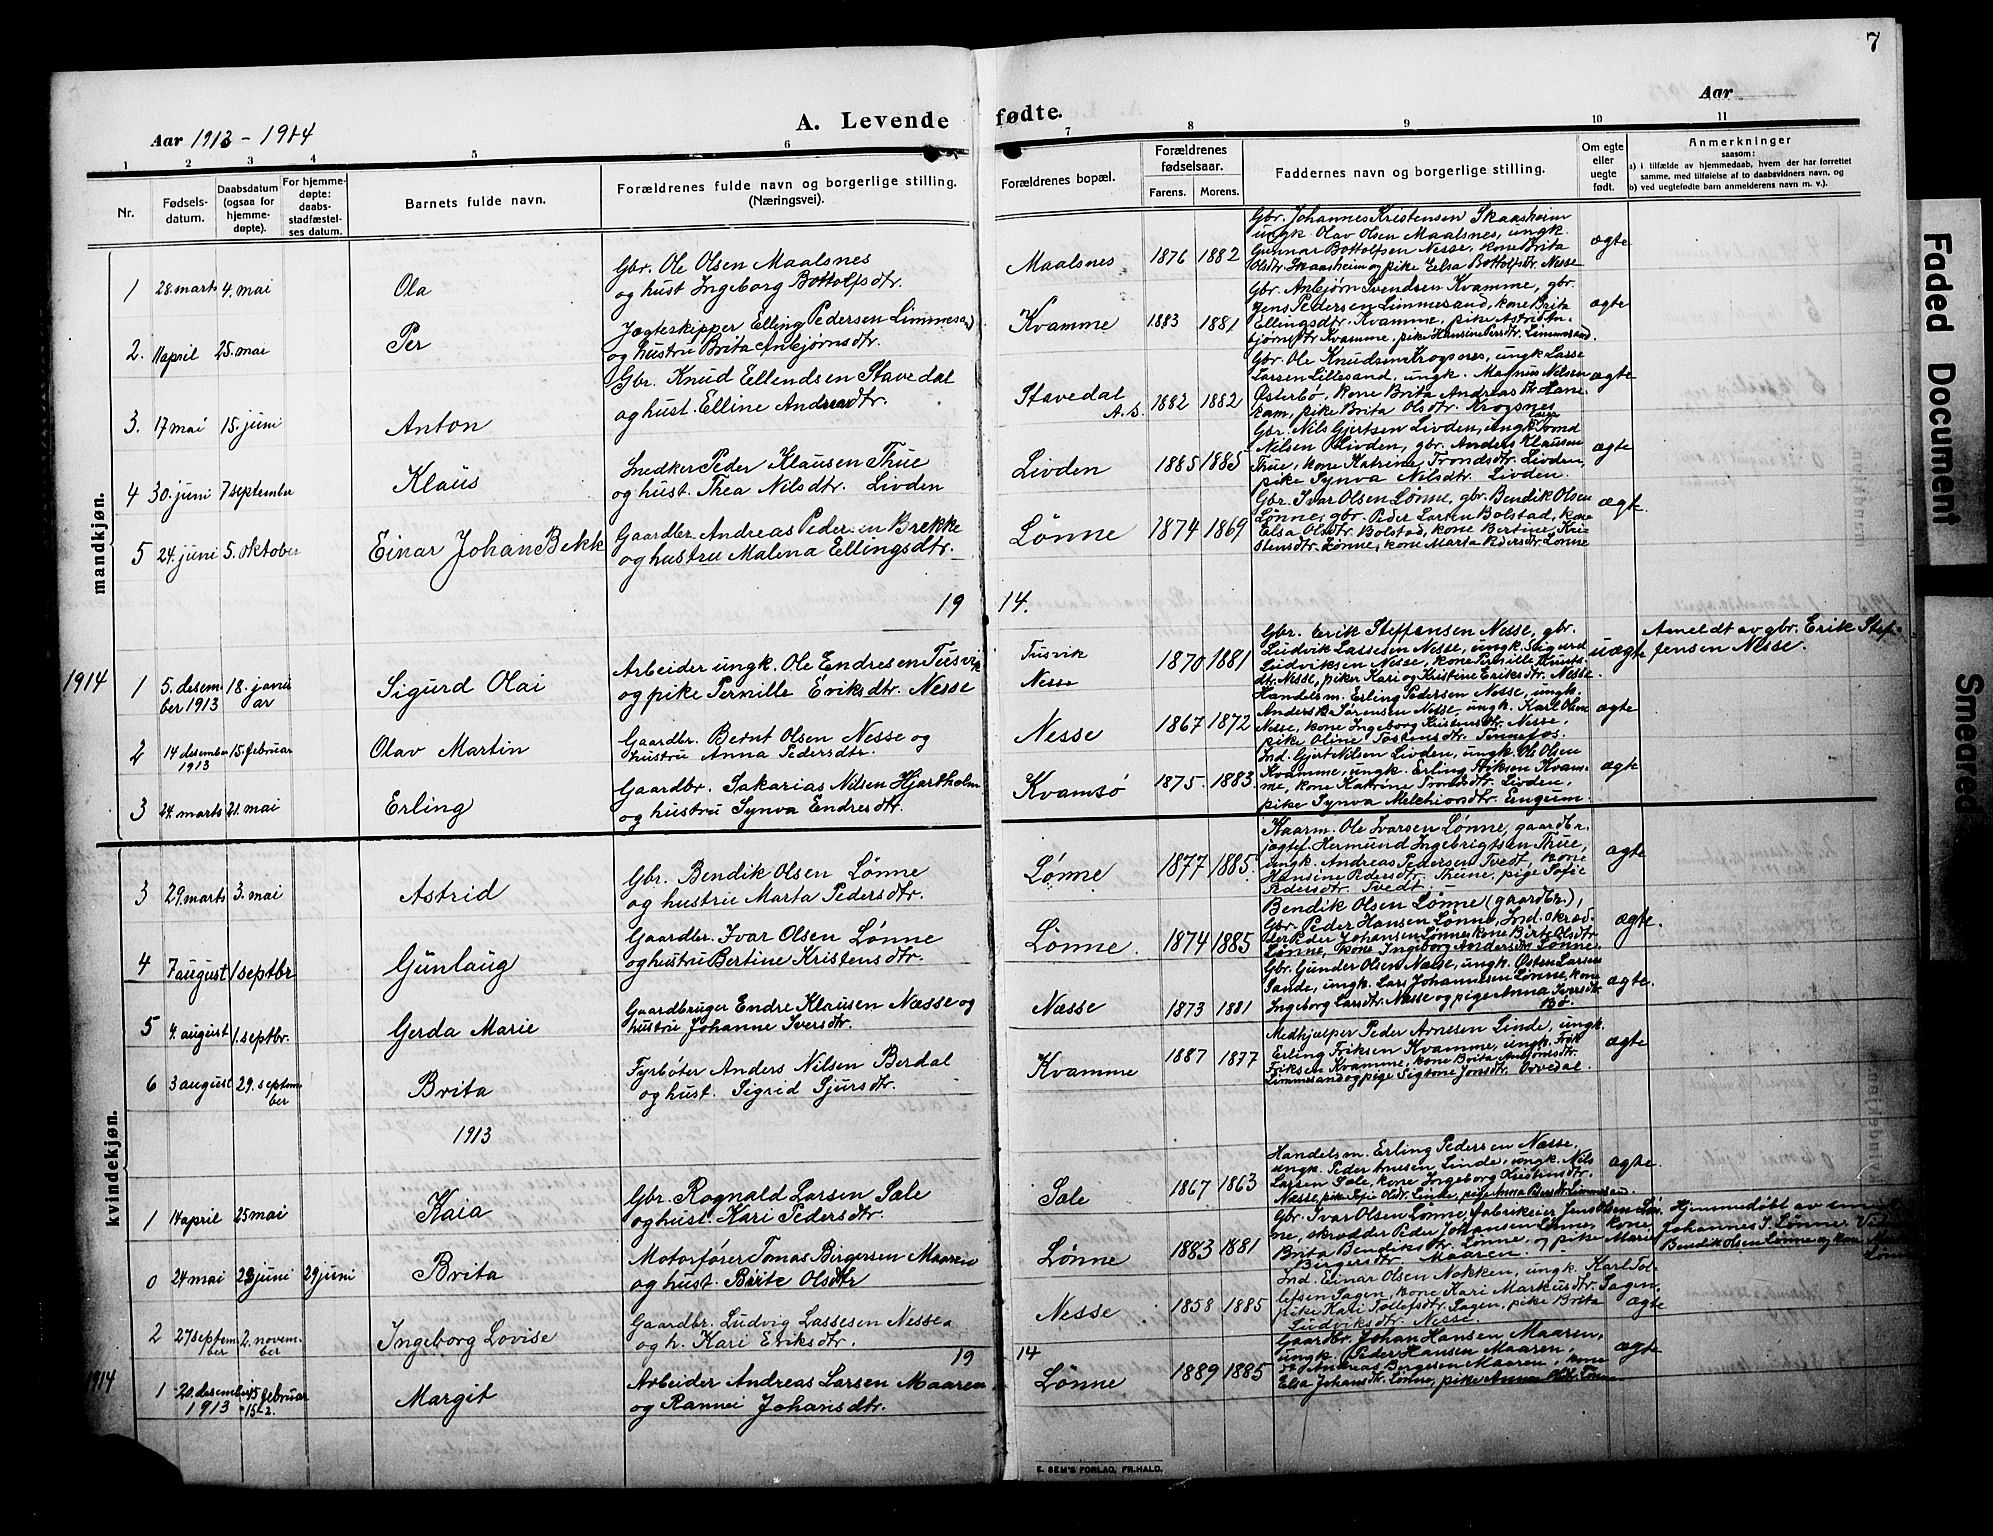 7
Aar 1913 - 1914
A. Levende fødte.
Aar
1 2 3 4 5 6 7 8 9 10 11
Nr.
Fødsels-
datum.
Daabsdatum
(ogsaa for
hjemme-
døpte).
For hjemme-
døpte:
daabs-
stadfæstel-
ses datum.
Barnets fulde navn.
Forældrenes fulde navn og borgerlige stilling.
(Næringsvei).
Forældrenes bopæl.
Forældrenes
fødselsaar.
Farens. Morens.
Faddernes navn og borgerlige stilling.
Om egte
eller
uegte
født.
Anmerkninger
saasom:
a) i tilfælde av hjemmedaab, hvem der har forrettet
samme, med tilføielse af to daabsvidners navn, og
b) ved uegtefødte barn anmelderens navn m. v.).
mandkjøn.
1 28. marts 4. mai Ola
Gbr. Ole Olsen Maalsnes
og hust Ingeborg Bottolfsdtr.
Maalsnes 1876 1882
Gbr. Johannes Kristensen Skaasheim
ungk. Olav Olsen Maalsnes, ungk.
Gunnar Bottolfsen Nesse, kone Brita
Olsdtr. Skaasheim og pike Eelsa Bottolfsdtr. Nesse
ægte
2. 11 april 25. mai Per
Jægteskipper Elling Pedersen Limmesand
og hustru Brita Anbjørnsdtr.
Kvamme 1883 1881
Gbr. Anbjørn Svendsen Kvamme, gbr.
Jens Pedersen Limmesand, kone Brita
Ellingsdtr. Kvamme, pike Astrid An-
bjørnsdtr Kvamme, pike Hansine Persdtr. Limmesand.
ægte
3. 17 mai 15. juni Anton
Gbr. Knud Ellendsen Stavedal
og hust. Elline Andreasdtr.
Stavedal
A.S. 1882 1882
Gbr. Ole Knudsen Krogsnes, ungk Lasse
Larsen Lillesand, ungk. Magnus Nilsen
Østerbø, kone Brita Andreas dtr. Hane-
kam, pike Brita Olsdtr. Krogsnes
ægte
4 30. juni 7 september Klaus
Snedker Peder Klausen Thue
og hust. Thea Nilsdtr. Livden
Livden 1885 1885
Gbr. Nils Gjertsen Livden, ungk Trond
Nilsen Livden, gbr. Anders Klausen
Thue, kone Katrine Trondsdtr. Livden,
pike Synva Nilsdtr. Livden.
ægte
5 24. juni 5. oktober Einar Johan Bekk
Gaardbr. Andreas Pedersen Brekke
og hustru Malena Ellingsdtr.
Lønne 1874 1869
Gbr. Ivar Olsen Lønne, gbr. Bendik Olsen
Lønne, gbr. Peder Larsen Bolstad, kone
Elsa Olsdtr. Bolstad, kone Bertine Kri-
stensdtr. Lønne, kone Marta Pedersdtr Lønne
ægte
19 14.
1914
1 5. desem-
ber 1913 18. janu
ar Sigurd Olai
Arbeider ungk. Ole Endresen Tusvik
og pike Pernille Eriksdtr. Nesse
Tusvik
Nesse 1870 1881
Gbr. Erik Steffensen Nesse, gbr.
Ludvik Lassesen Nesse, ungk. Sigurd
Ludviksen Nesse, kone Pernille Knuts-
dtr. Nesse, piker Kari og Kristine Eriksdtr. Nesse.
uægte
Anmeldt av gbr. Erik Stef-
fensen Nesse.
2 14 desember
1913 15. februar Olav Martin
Gaardbr. Bernt Olsen Nesse og
hustru Anna Pedersdtr.
Nesse 1867 1872
Handelsm. Erling Pedersen Nesse, ungk.
Anders Sørensen Nesse, ungk. Karl Olsen
Nesse, kone Ingeborg Kristensdtr. Nesse,
pike Oline Tostensdtr. Tennefos.
ægte
3 24. marts 21. mai Erling
Gaardbr. Sakarias Nilsen Hjartholm
og hustru Synva Endresdtr.
Kvamsø 1875. 1883.
Ind. Gjert Nilsen Livden, ungk. Ole Olsen
Kvamme, ungk. Erling Eriksen Kvam-
me, kone Katrine Trondsdtr. Livden
pike Synva Melchiorsdtr. Engum.
ægte
kvindekjøn.
3 29. marts 3. mai Astrid
Gbr. Bendik Olsen Lønne
og hustru Marta Pedersdtr.
Lønne 1877 1885.
Kaarm. Ole Ivarsen Lønne, gaardbr.
jægtef. Hermund Ingebrigtsen Thue,
ungk. Andreas Pedersen Tvedt, kone
Hansine Pedersdtr. Thune, pige Sofie
Pedersdtr. Tvedt.
ægte
4 7 august 1 septbr Gunlaug
Gaardbr. Ivar Olsen Lønne
og hustru Bertine Kristensdtr.
Lønne 1874 1885
Bendik Olsen Lønne (gaardbr.),
Gbr. Peder Hansen Lønne, Ind. skræd-
der Peder Johansen Lønne, kone Birte Olsdtr
Lønne, kone Ingeborg Andersdtr. Lønne.
ægte.
5 4. august 1. septbr. Gerda Marie
Gaardbruger Endre Klausen Næsse og
hustru Johanne Iversdtr.
Næsse 1873 1881
Gbr. Gunder Olsen Næsse, ungk. Østen Larsen
Sande, ungk. Lars Johannesen Lønne, kone
Ingeborg Larsdtr. Næsse og pige Anna Iversdtr.
Bø.
ægte.
6 3 august 29. septem
ber Brita
Fyrbøter Anders Nilsen Berdal
og hust. Sigrid Sjursdtr.
Kvamme 1887 1877
Medhjælper Peder Arnesen Linde, ungk.
Erling Eriksen Kvamme, ungk. Erik
Eriksen Kvamme, kone Brita Anbjørnsdtr.
Limmesand og pige Sigtone Jonsdtr. Orvedal.
ægte
1913
1 14 april 25 mai Kaia
Gbr. Rognald Larsen Sale
og hust. Kari Pedersdtr.
Sale 1867 1863
Handelsm. Erling Pedersen Næsse,
ungk. Peder Arnesen Linde, ungk. Nils
Larsen Sale, kone Ingeborg Kristensdtr.
Næsse, pike Sofie Oldtr. Linde, pige Anna Persdtr. Limmesand.
ægte.
0 24 mai 28 juni 29 juni Brita
Motorfører Tomas Birgersen Maaren
og hust. Birte Olsdtr
Lønne 1883 1881
Gbr. Ivar Olsen Lønne, fabrikeier Jens Olsen Løn
ne, skrædder Peder Johansen Lønne, kone
Brita Bendiksdtr. Lønne og pike Marie
Birgersdtr. Maaren.
Hjemmedøbt av smed
Johannes I. Lønne. Vidner
Bendik Olsen Lønne og kone
Lønne
2 27 septem
ber 2. novem-
ber Ingeborg Lovise
Gaardbr. Ludvig Lassesen Nesse
og h. Kari Eriksdtr.
Nesse 1858 1885
Ind. Einar Olsen Nokken, ungk. Karl Tol-
lefsen Sagen, kone Kari Markusdtr. Sagen,
pike Kari Tollefsdtr. Sagen, pike Brita
Ludviksdtr. Nesse.
ægte
19 14
1914
1 20. desember
1913 15 februar
15-2. Margit
Arbeider Andreas Larsen Maaren
og Rannei Johansdtr.
Lønne 1889 1885
Gaardbr. Johan Hansen Maaren,
ungk. Peder Hansen Maaren,
Andreas Bergesen Maaren, kone
Elsa Johansdtr. Lønne, pike Anna Oldtr. Lønne
ægte
E. SEM'S FORLAG, FR.HALD.
Faded Document
Smeared